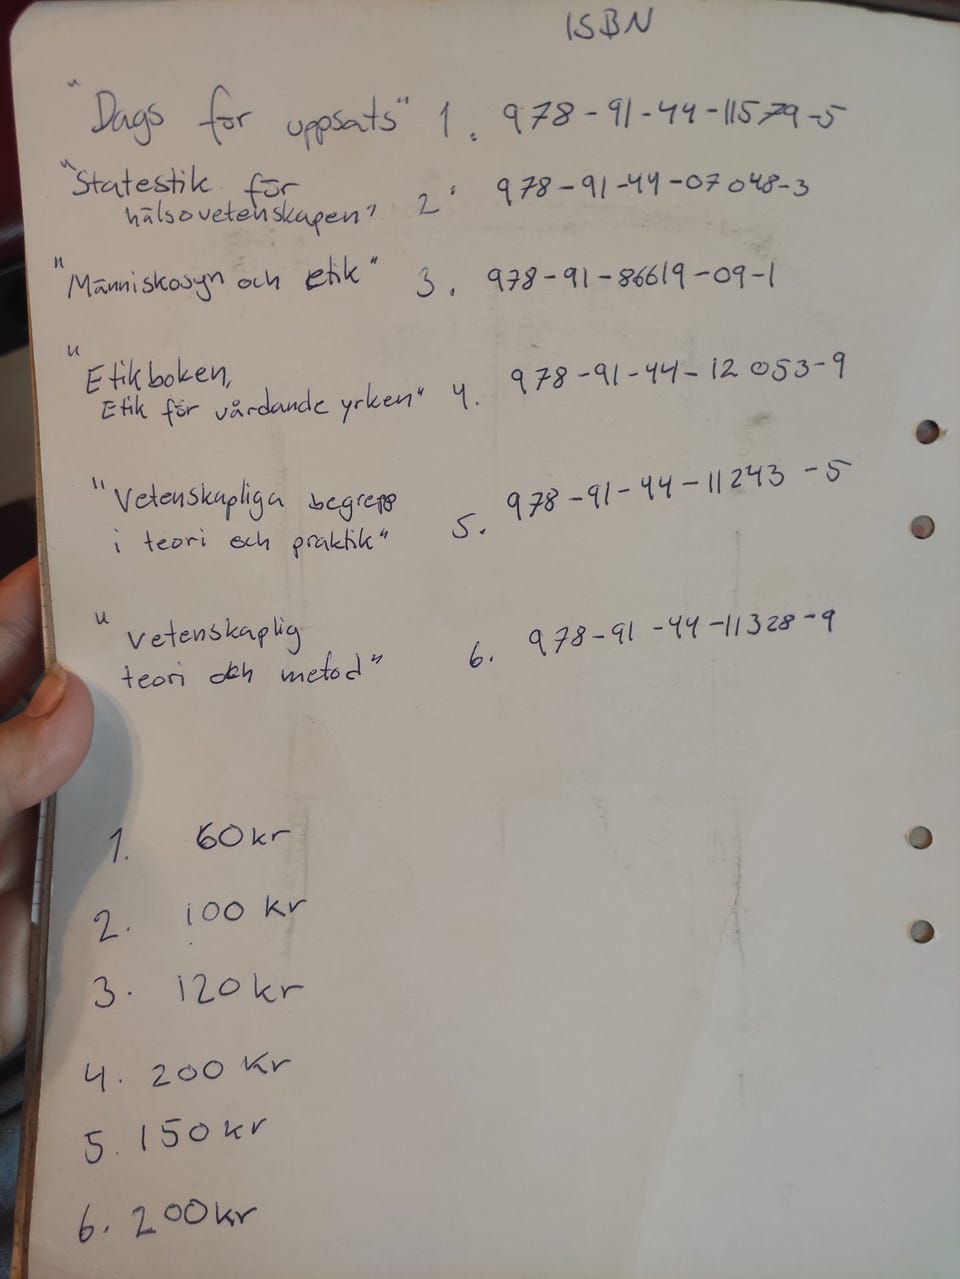 ISBN
"Dags för uppsats" 1. 978-91-44-11579-5
"Statestik för
hälsovetenskapen" 2. 978-91-44-07048-3
"Människosyn och etik" 3. 978-91-86619-09-1
"Etikboken,
Etik för vårdande yrken" 4. 978-91-44-12053-9
"Vetenskapliga begrepp
i teori och praktik" 5. 978-91-44-11243-5
"Vetenskaplig
teori och metod" 6. 978-91-44-11328-9
1. 60kr
2. 100 kr
3. 120kr
4. 200 kr
5. 150kr
6. 200kr